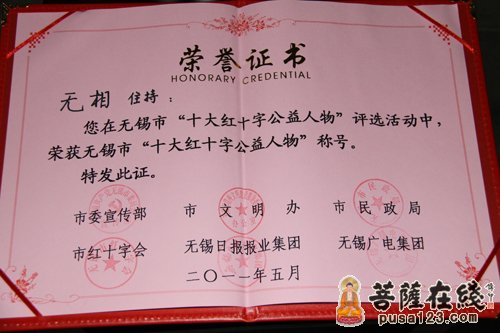 荣誉证书
HONORARY CREDENTIAL
无相 住持：
您在无锡市“十大红十字公益人物”评选活动中，
荣获无锡市“十大红十字公益人物”称号。
特发此证。
市委宣传部 市文明办 市民政局
市红十字会 无锡日报报业集团 无锡广电集团
二〇一一年五月
菩薩在线
pusa123.com